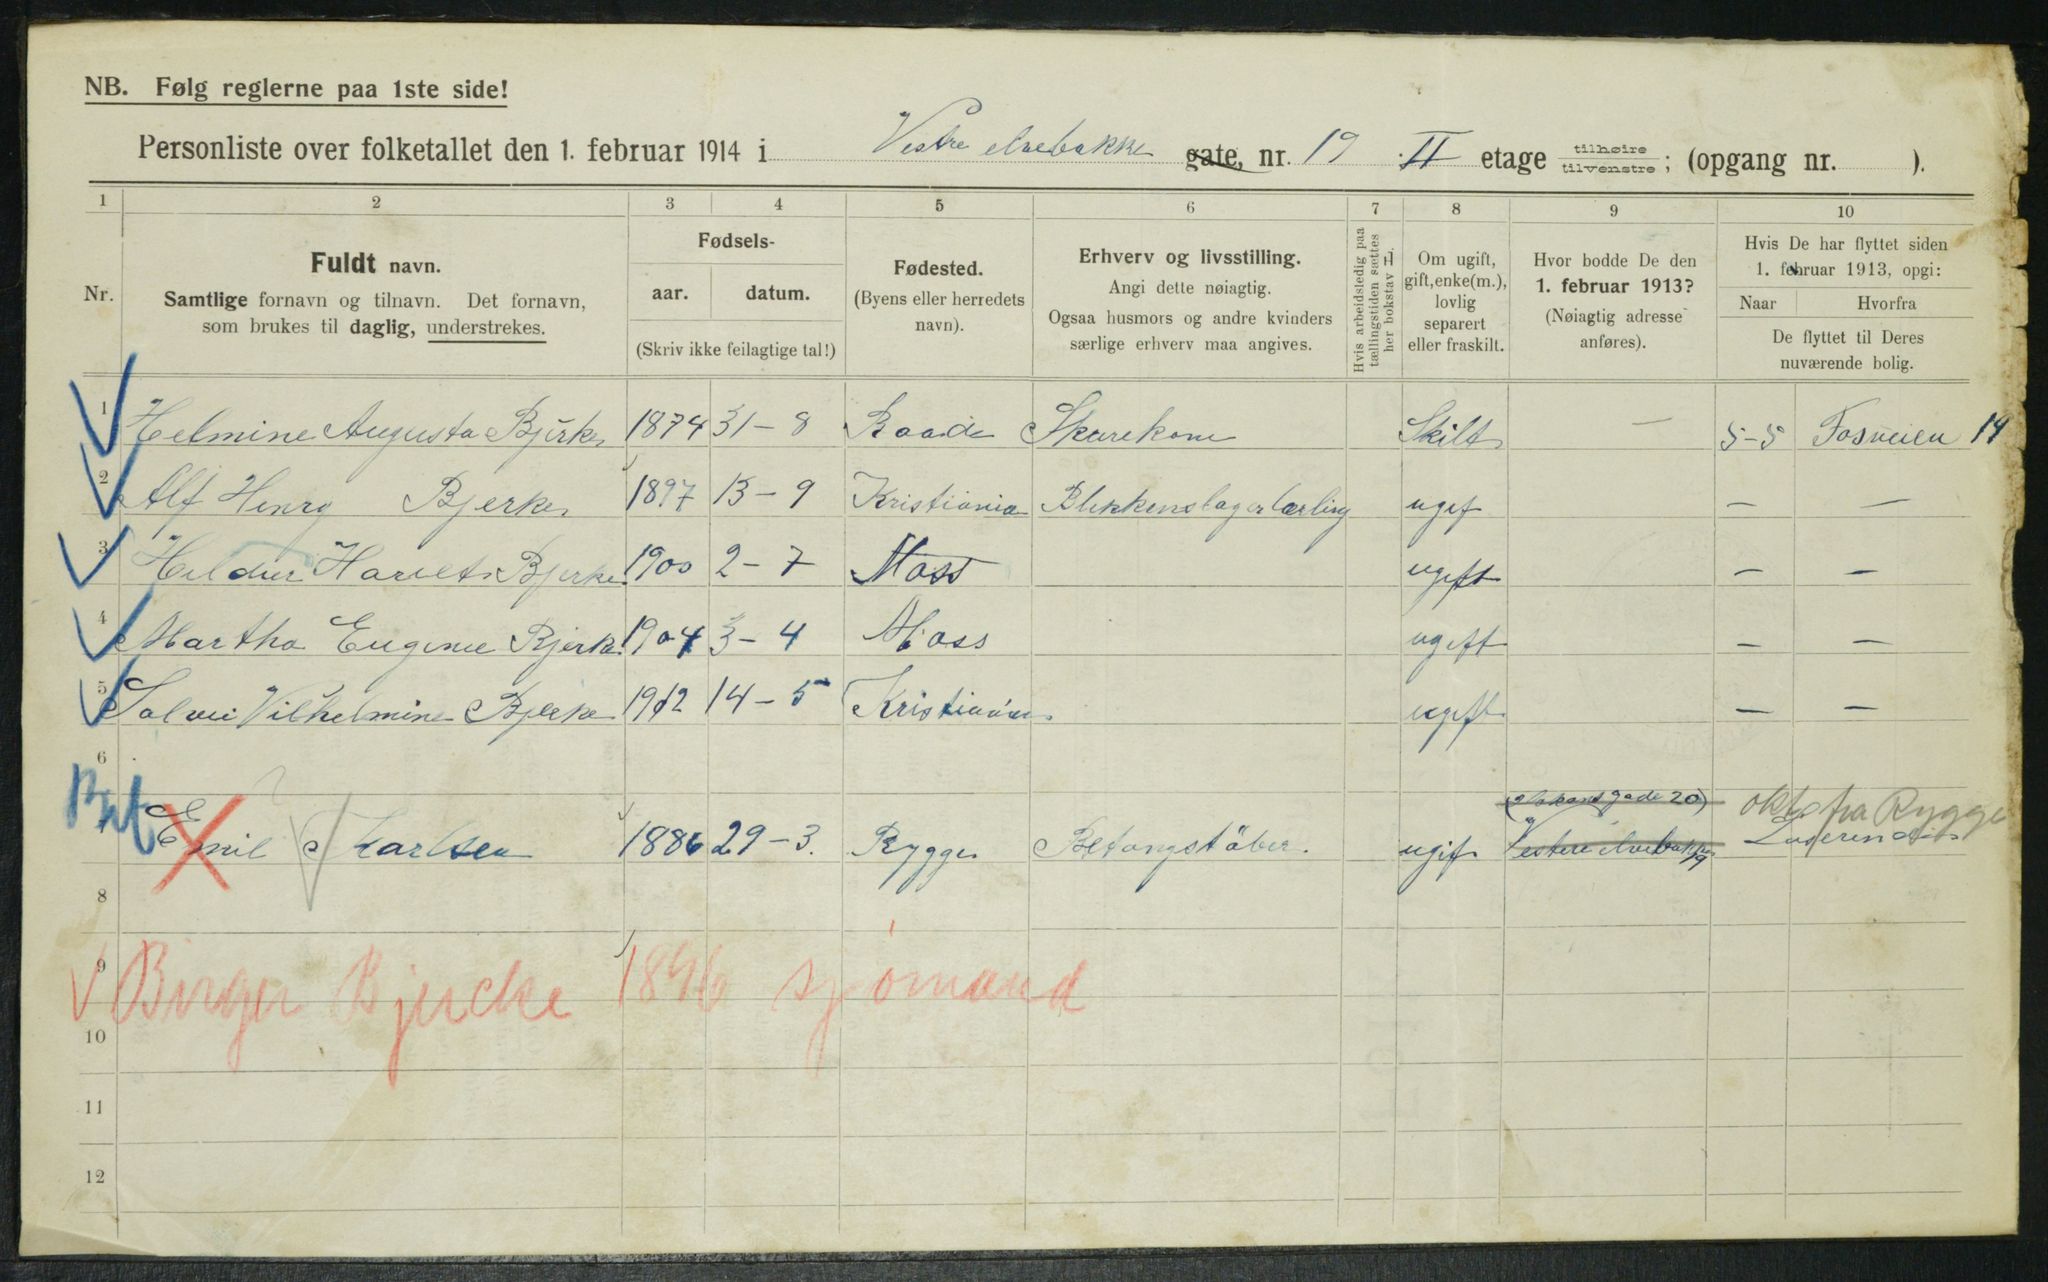 NB. Følg reglerne paa 1ste side!
Personliste over folketallet den 1. februar 1914 i Vestre elvebakke gate, nr. 19 II etage tilhøire tilvenstre; (opgang nr. ).
1 2 3 4 5 6 7 8 9 10
Nr.
Fuldt navn.
Samtlige fornavn og tilnavn. Det fornavn,
som brukes til daglig, understrekes.
Fødsels-
aar. datum.
(Skriv ikke feilagtige tal!)
Fødested.
(Byens eller herredets
navn).
Erhverv og livsstilling.
Angi dette nøiagtig.
Ogsaa husmors og andre kvinders
særlige erhverv maa angives.
Hvis arbeidsledig paa
tællingstiden sættes
her bokstav L.
Om ugift,
gift, enke(m.),
lovlig
separert
eller fraskilt.
Hvor bodde De den
1. februar 1913?
(Nøiagtig adresse
anføres).
Hvis De har flyttet siden
1. februar 1913, opgi:
Naar Hvorfra
De flyttet til Deres
nuværende bolig.
1 Helmine Augusta Bjerke 1874 31-8 Raade Skurekone Skilt — 5-5 Fosveien 14
2 Alf Henry Bjerke 1897 13-9 Kristiania Blikkenslagerlærling ugif — —
3 Hildur Bjerke 1900 2-7 Moss ugift — —
4 Martha Eugenie Bjerke 1904 3-4 Moss ugift — —
5 Solvei Vilhelmine Bjerke 1912 14-5 Kristiania ugift — —
6
7 Emil Karlsen 1886 29-3. Rygge Betongstöber. ugif gade 20) Vestere elvebakke 19 okt fra Rygge
8
9 Birger Bjercke 1896 sjømand
10
11
12